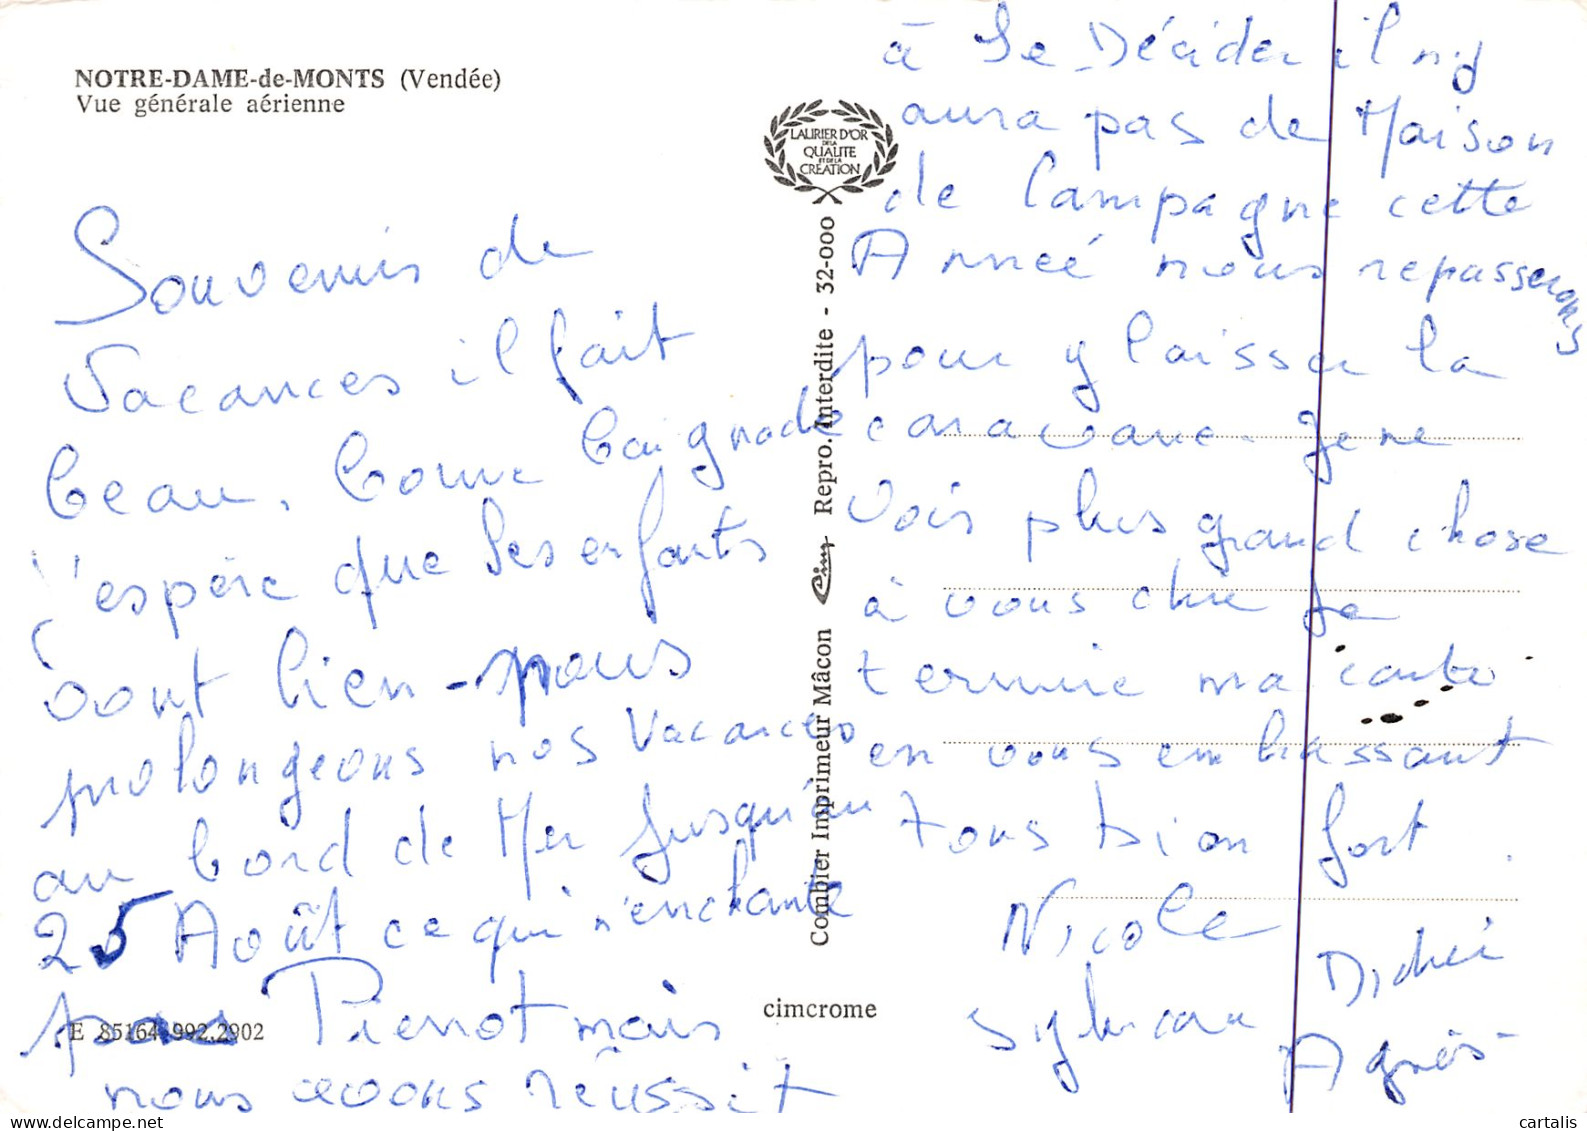 NOTRE-DAME-de-MONTS (Vendée)
Vue générale aérienne
Souvenirs de
Vacances il fait
beau, bonne baignade
j'espère que les enfants
vont bien - nous
prolongeons nos vacances
au bord de Mer jusqu'au
25 Août ce qui n'enchante
pas Pierrot mais
nous avons réussit
E 85164.992.2902
LAURIER D'OR
DE LA
QUALITE
ET DE LA
CREATION
Combier Imprimeur Mâcon Cim Repro. Interdite - 32-000
cimcrome
à se Décider il n'y
aura pas de Maison
de Campagne cette
Anneé nous repasserons
pour y laisser la
caravane. Je ne
vois plus grand chose
à vous dire je
termine ma carte
en vous embrassant
tous bien fort.
Nicole
Didier
Sylviane
Agnès-
cartalis